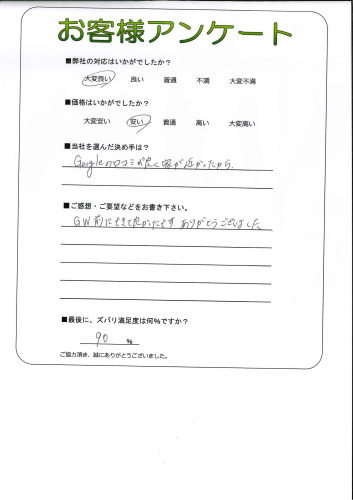 お客様アンケート
■弊社の対応はいかがでしたか?
大変良い 良い 普通 不満 大変不満
■価格はいかがでしたか?
大変安い 安い 普通 高い 大変高い
■当社を選んだ決め手は?
Googleの口コミが良く家が近かったから.
■ご感想・ご要望などをお書き下さい。
GW前にできて良かったです ありがとうございました。
■最後に、ズバリ満足度は何%ですか?
90 %
ご協力頂き、誠にありがとうございました。